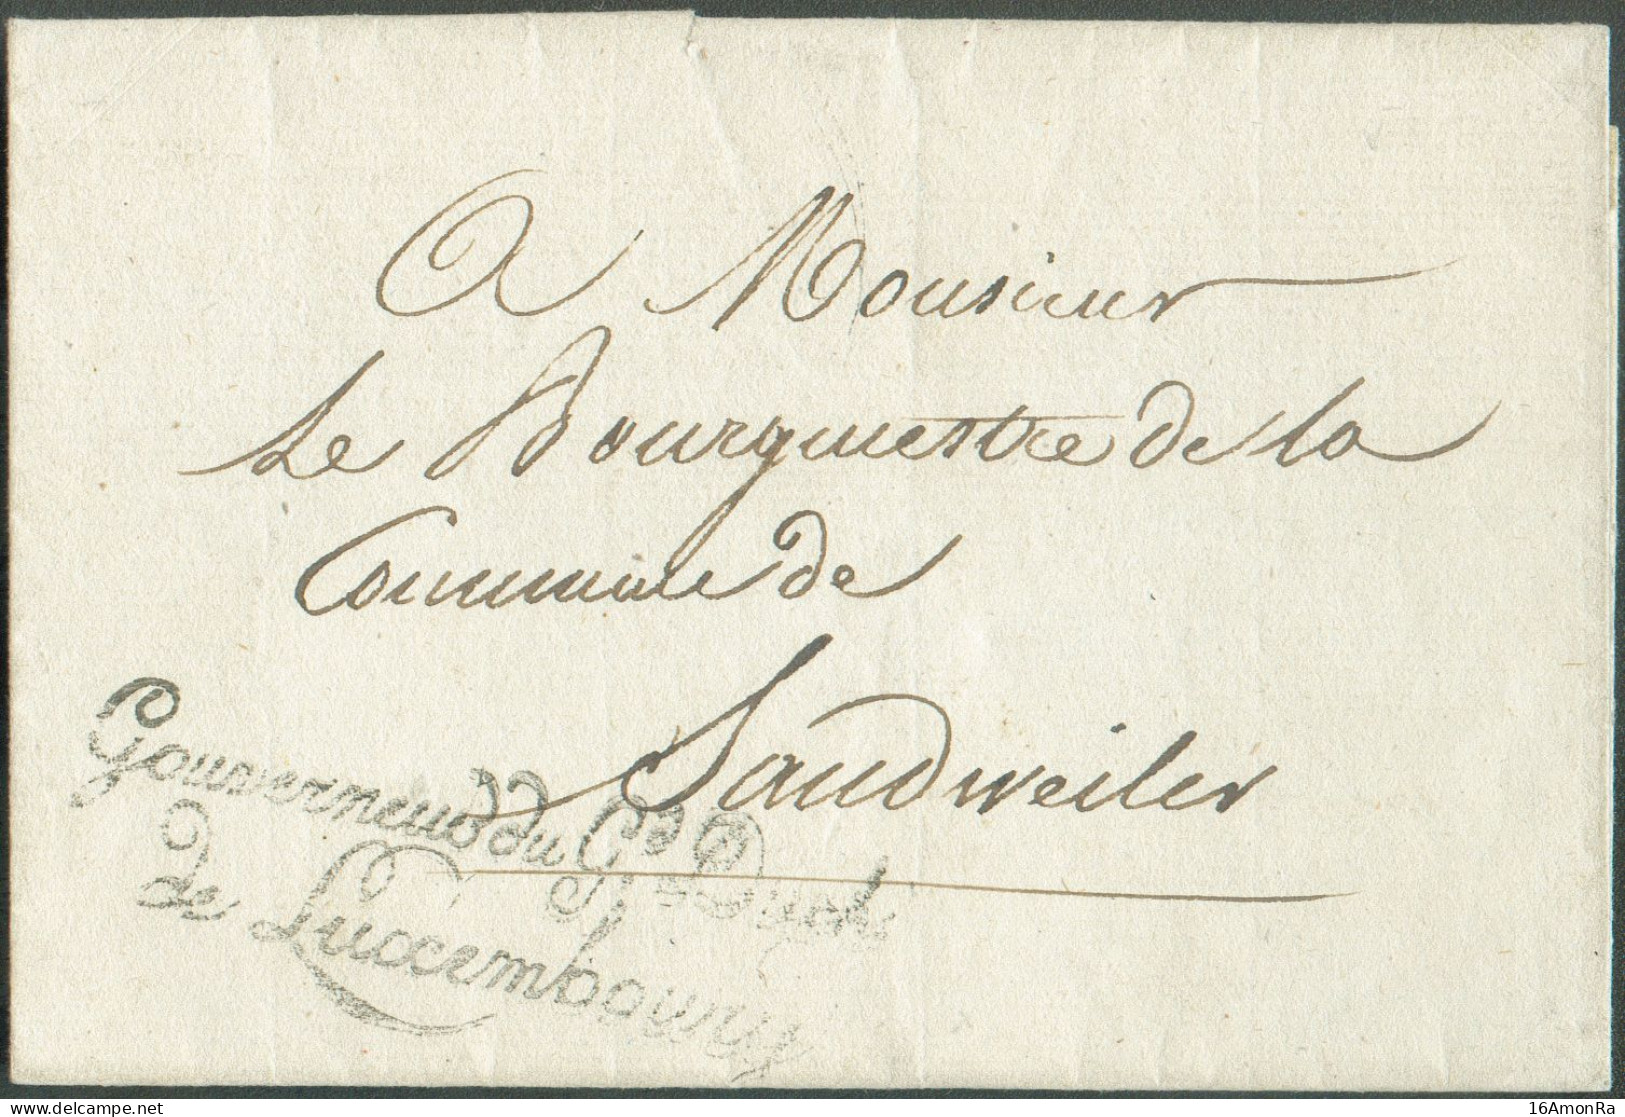 A Monsieur
Le Bourguestre de la
Commune de
Sandweiler
Gouverneur du Gd Duché
de Luxembourg
16AmonRa